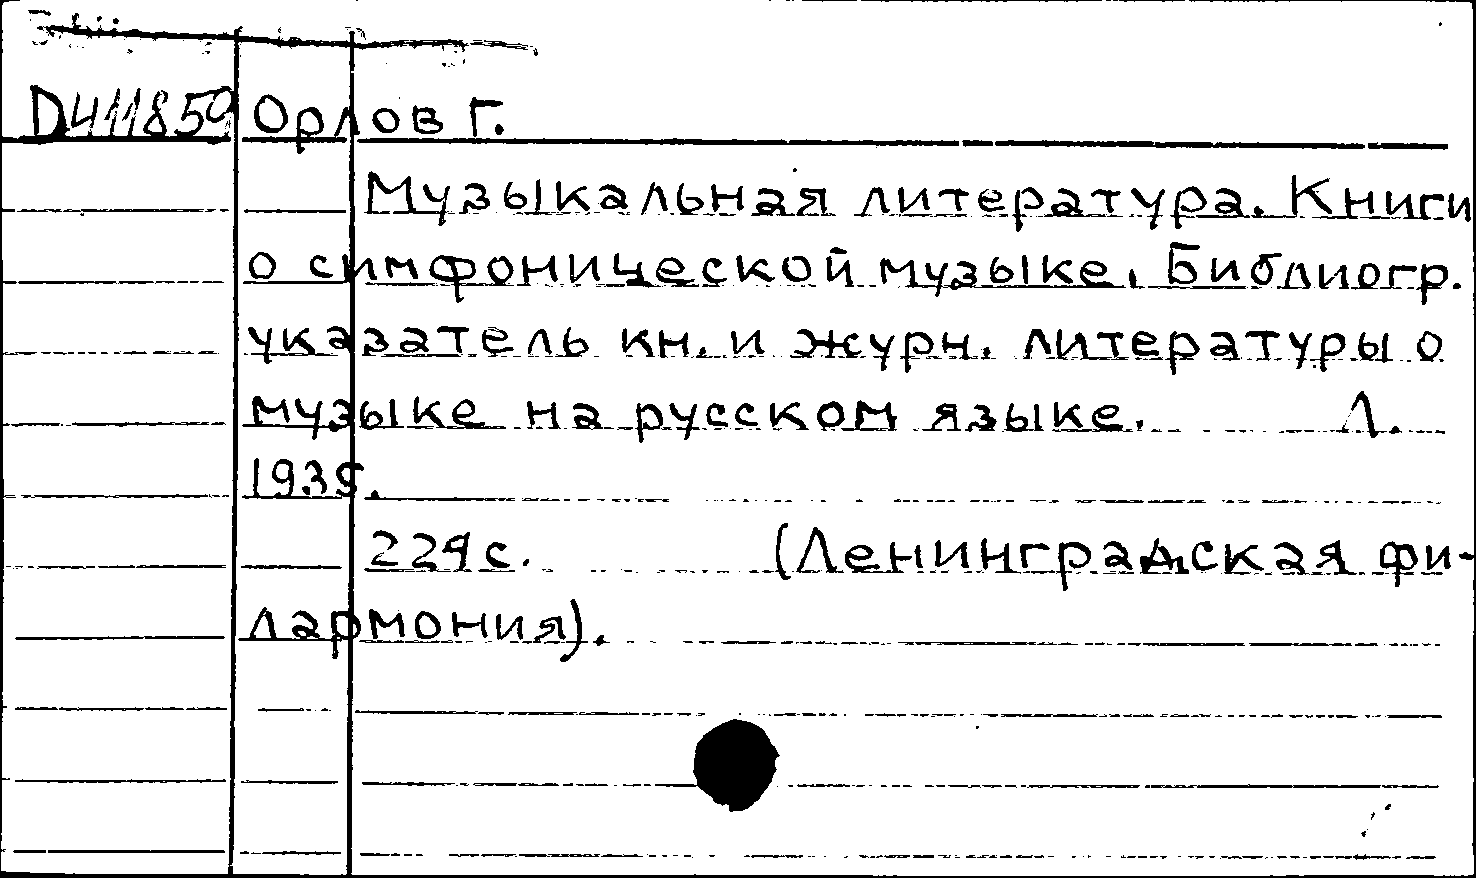 D411859 Орлов Г.
Музыкальная литература. Книги
о симфонической музыке. Библиогр.
указатель кн. и журн. литературы о
музыке на русском языке. Л.
1935.
224с. (Ленинградская фи-
лармония).